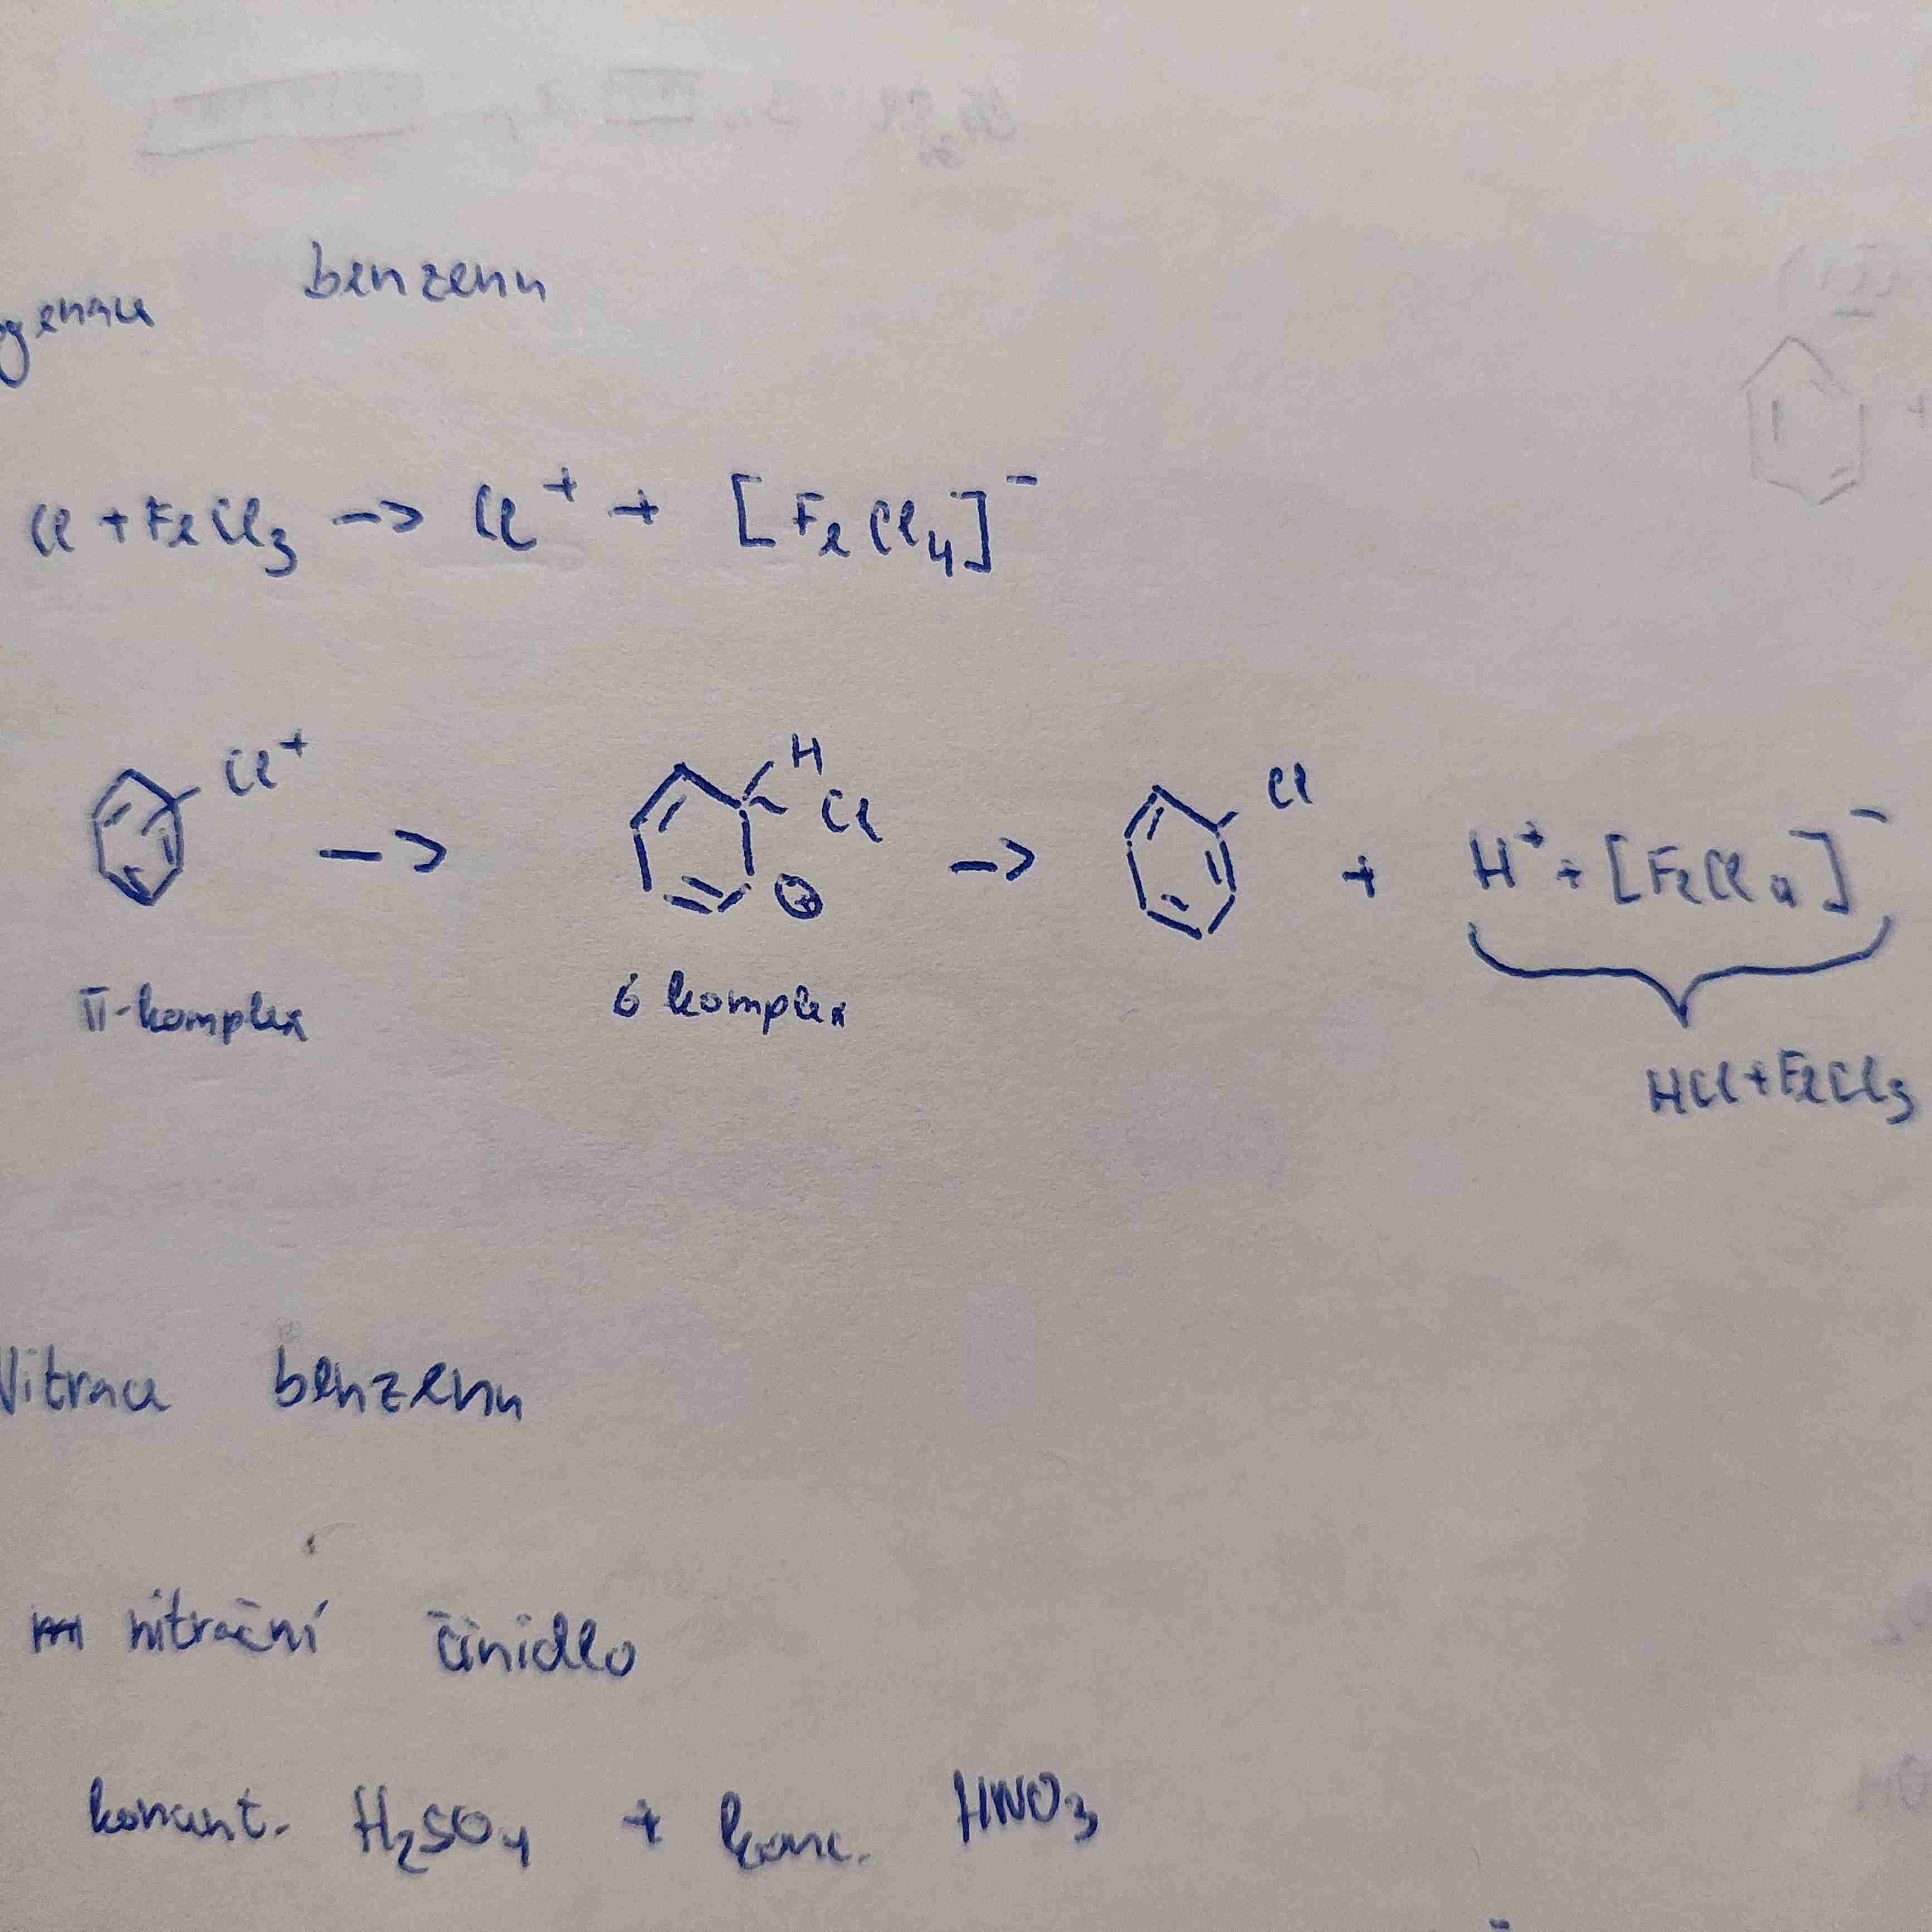 genace benzenu
Cl + FeCl₃ -> Cl⁺ + [FeCl₄]⁻
Cl⁺ -> H Cl ⊕ -> Cl + H⁺ + [FeCl₄]⁻
π-komplex σ komplex
HCl + FeCl₃
Nitrace benzenu
nitrační činidlo
koncent. H₂SO₄ + konc. HNO₃